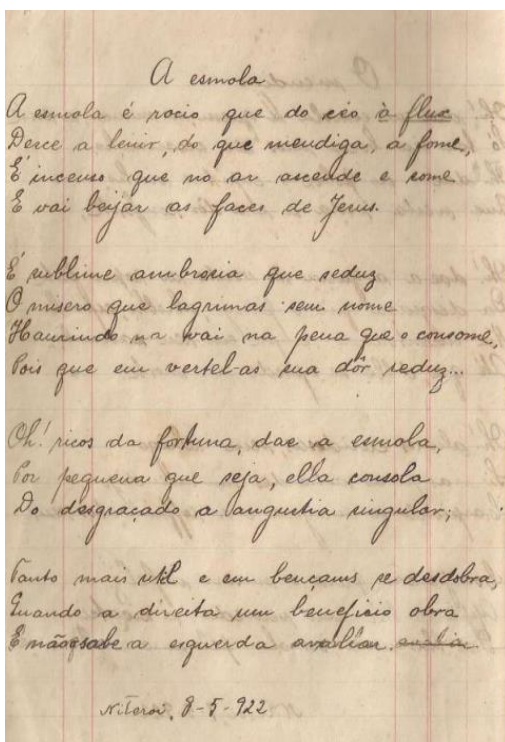 A esmola
A esmola é rocio que do céo à flux
Desce a lenir, do que mendiga, a fome,
É incenso que no ar ascende e some
E vai beijar as faces de Jesus.
É sublime ambrosia que seduz
O misero que lagrimas sem nome
Haurindo na vai na pena que o consome,
Pois que em vertel-as sua dôr reduz...
Oh! ricos da fortuna, dae a esmola,
Por pequena que seja, ella consola
Do desgraçado a angustia singular;
Tanto mais util e em bençams se desdobra,
Quando a direita um beneficio obra
E não sabe a esquerda avaliar.
Niteroi, 8-5-922